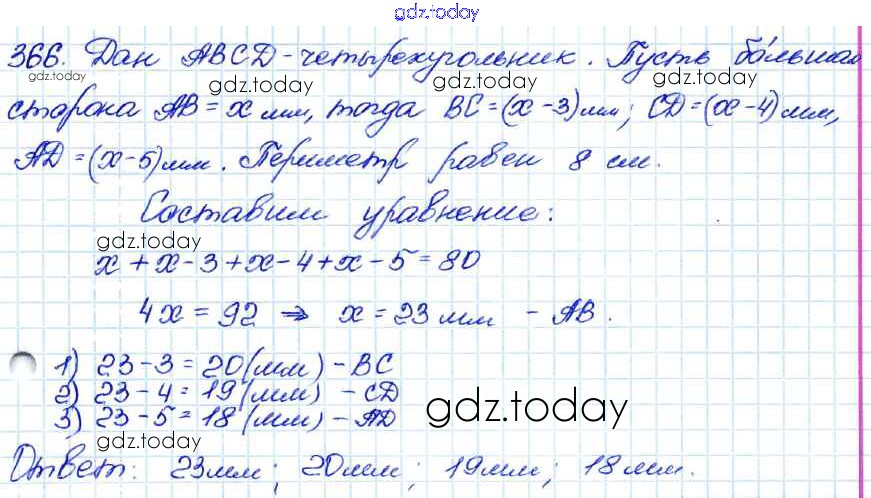 gdz.today
366. Дан ABCD - четырехугольник. Пусть большая
gdz.today
gdz.today
gdz.today
сторона AB = x мм, тогда BC = (x - 3) мм; CD = (x - 4) мм,
AD = (x - 5) мм. Периметр равен 8 см.
Составим уравнение:
gdz.today
gdz.today
x + x - 3 + x - 4 + x - 5 = 80
4x = 92 ⇒ x = 23 мм - AB.
1) 23 - 3 = 20 (мм) - BC
gdz.today
2) 23 - 4 = 19 (мм) - CD
gdz.today
3) 23 - 5 = 18 (мм) - AD
gdz.today
Ответ: 23 мм; 20 мм; 19 мм; 18 мм.